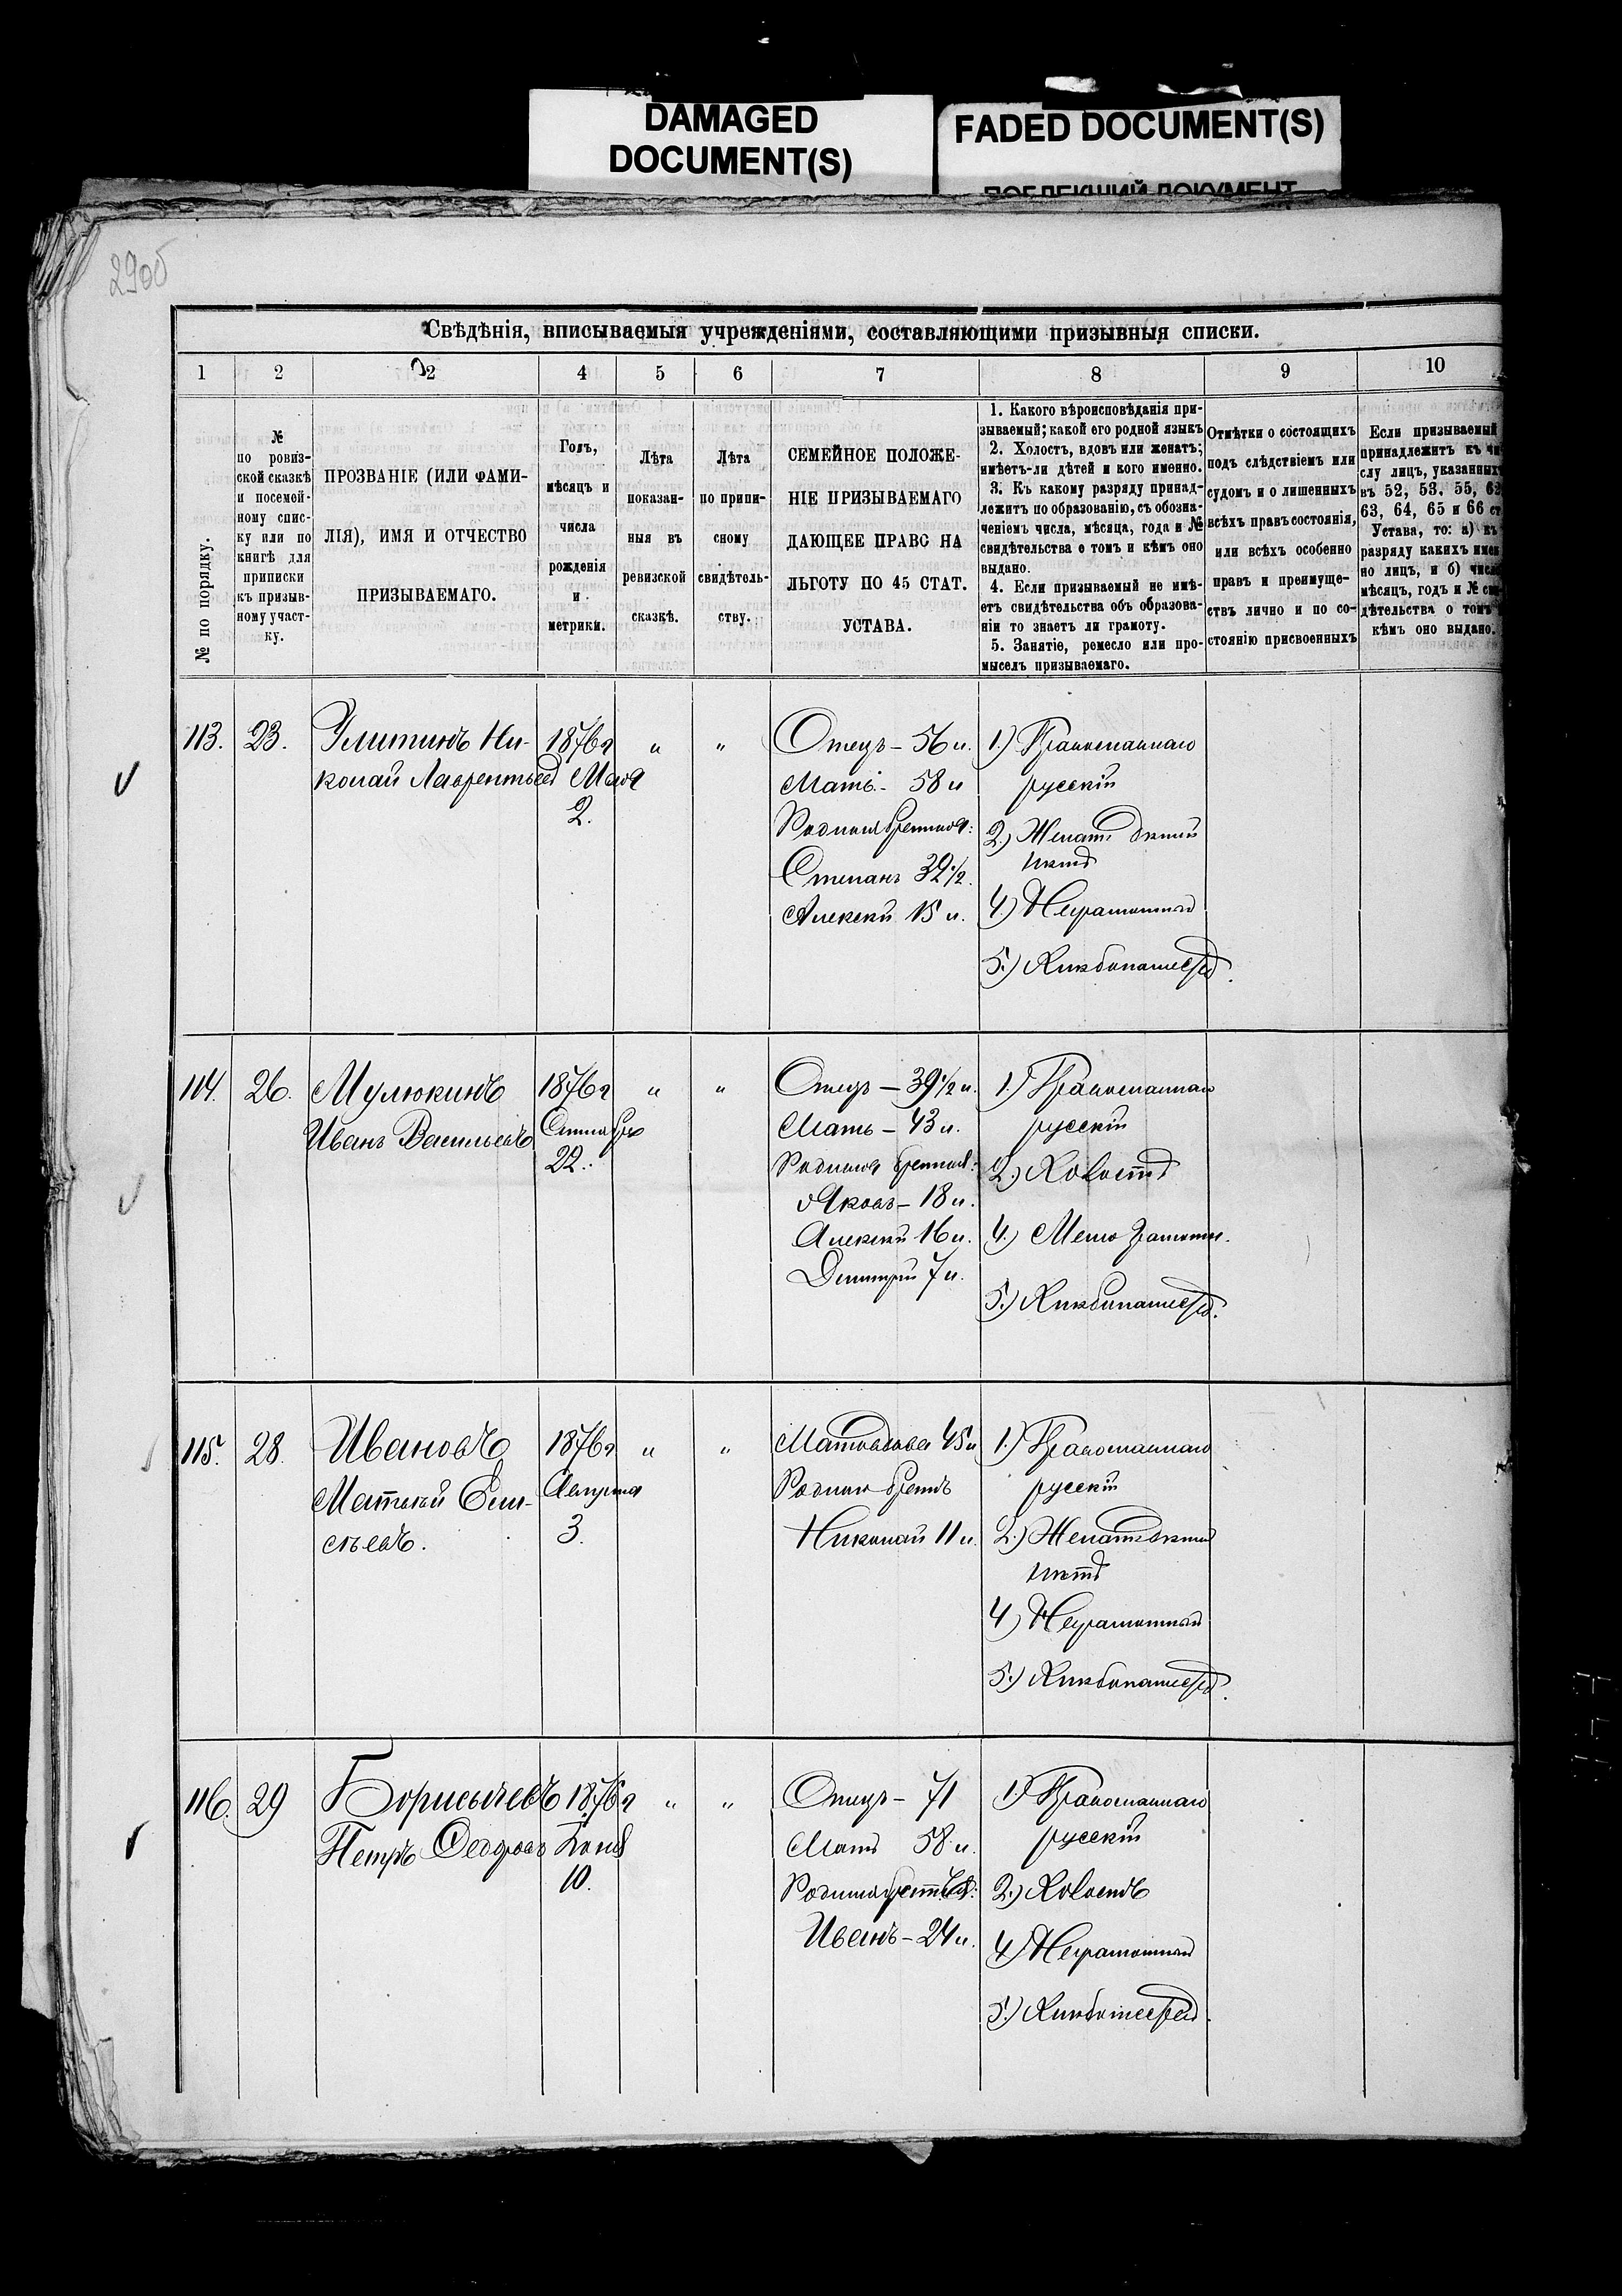 DAMAGED
DOCUMENT(S)
FADED DOCUMENT(S)
290б
Свѣдѣнія, вписываемыя учрежденіями, составляющими призывныя списки.
1 2 2 4 5 6 7 8 9 10
№ по порядку.
№
по ревиз-
ской сказкѣ
и посемей-
ному спис-
ку или по
книгѣ для
приписки
къ призыв-
ному участ-
ку.
ПРОЗВАНІЕ (ИЛИ ФАМИ-
ЛІЯ), ИМЯ И ОТЧЕСТВО
ПРИЗЫВАЕМАГО.
Годъ,
мѣсяцъ и
числа
рожденія
и
метрики.
Лѣта
показан-
ныя въ
ревизской
сказкѣ.
Лѣта
по припи-
сному
свидѣтель-
ству.
СЕМЕЙНОЕ ПОЛОЖЕ-
НІЕ ПРИЗЫВАЕМАГО
ДАЮЩЕЕ ПРАВО НА
ЛЬГОТУ ПО 45 СТАТ.
УСТАВА.
1. Какого вѣроисповѣданія при-
зываемый; какой его родной языкъ
2. Холостъ, вдовъ или женатъ;
имѣетъ-ли дѣтей и кого именно.
3. Къ какому разряду принад-
лежитъ по образованію, съ обозна-
ченіемъ числа, мѣсяца, года и №
свидѣтельства о томъ и кѣмъ оно
выдано.
4. Если призываемый не имѣ-
етъ свидѣтельства объ образова-
ніи то знаетъ ли грамоту.
5. Занятіе, ремесло или про-
мыселъ призываемаго.
Отмѣтки о состоящихъ
подъ слѣдствіемъ или
судомъ и о лишенныхъ
всѣхъ правъ состоянія,
или всѣхъ особенно
правъ и преимуще-
ствъ лично и по со-
стоянію присвоенныхъ
Если призываемый
принадлежитъ къ чи
слу лицъ, указанных
въ 52, 53, 55, 62
63, 64, 65 и 66 ст
Устава, то: а) къ
разряду какихъ имен
но лицъ, и б) число
мѣсяцъ, годъ и № сви
дѣтельства о томъ
кѣмъ оно выдано.
113. 23.
Улитинъ Ни-
колай Лаврентьевъ
1876 г
Мая
2.
" "
Отецъ – 56 л.
Мать – 58 л
Родныя братья:
Степанъ 32 1/2
Алексѣй 15 л.
1.) Православнаго
русскій
2.) Женатъ дѣтей
нѣтъ
4.) Неграмотный
5.) Хлѣбопашецъ
114. 26.
Мулюкинъ
Иванъ Васильевъ
1876 г
Сентября
22.
" "
Отецъ – 39 1/2 л.
Мать – 43 л.
Родныя братья:
Яковъ – 18 л.
Алексѣй 16 л.
Дмитрій 7 л.
1.) Православнаго
русскій
2.) Холостъ
4.) Мало грамотн.
5.) Хлѣбопашецъ.
115. 28.
Ивановъ
Матвѣй Ели-
сѣевъ.
1876 г
Августа
3.
" "
Мать вдова 45 л
Родной братъ
Николай 11 л.
1.) Православнаго
русскій
2.) Женатъ дѣтей
нѣтъ
4) Неграмотный
5.) Хлѣбопашецъ.
116. 29
Борисычевъ
Петръ Ѳедоровъ
1876 г
Іюня
10.
" "
Отецъ – 71
Мать 58 л.
Родныя братья:
Иванъ – 24 л.
1.) Православнаго
русскій
2.) Холостъ
4) Неграмотный
5.)